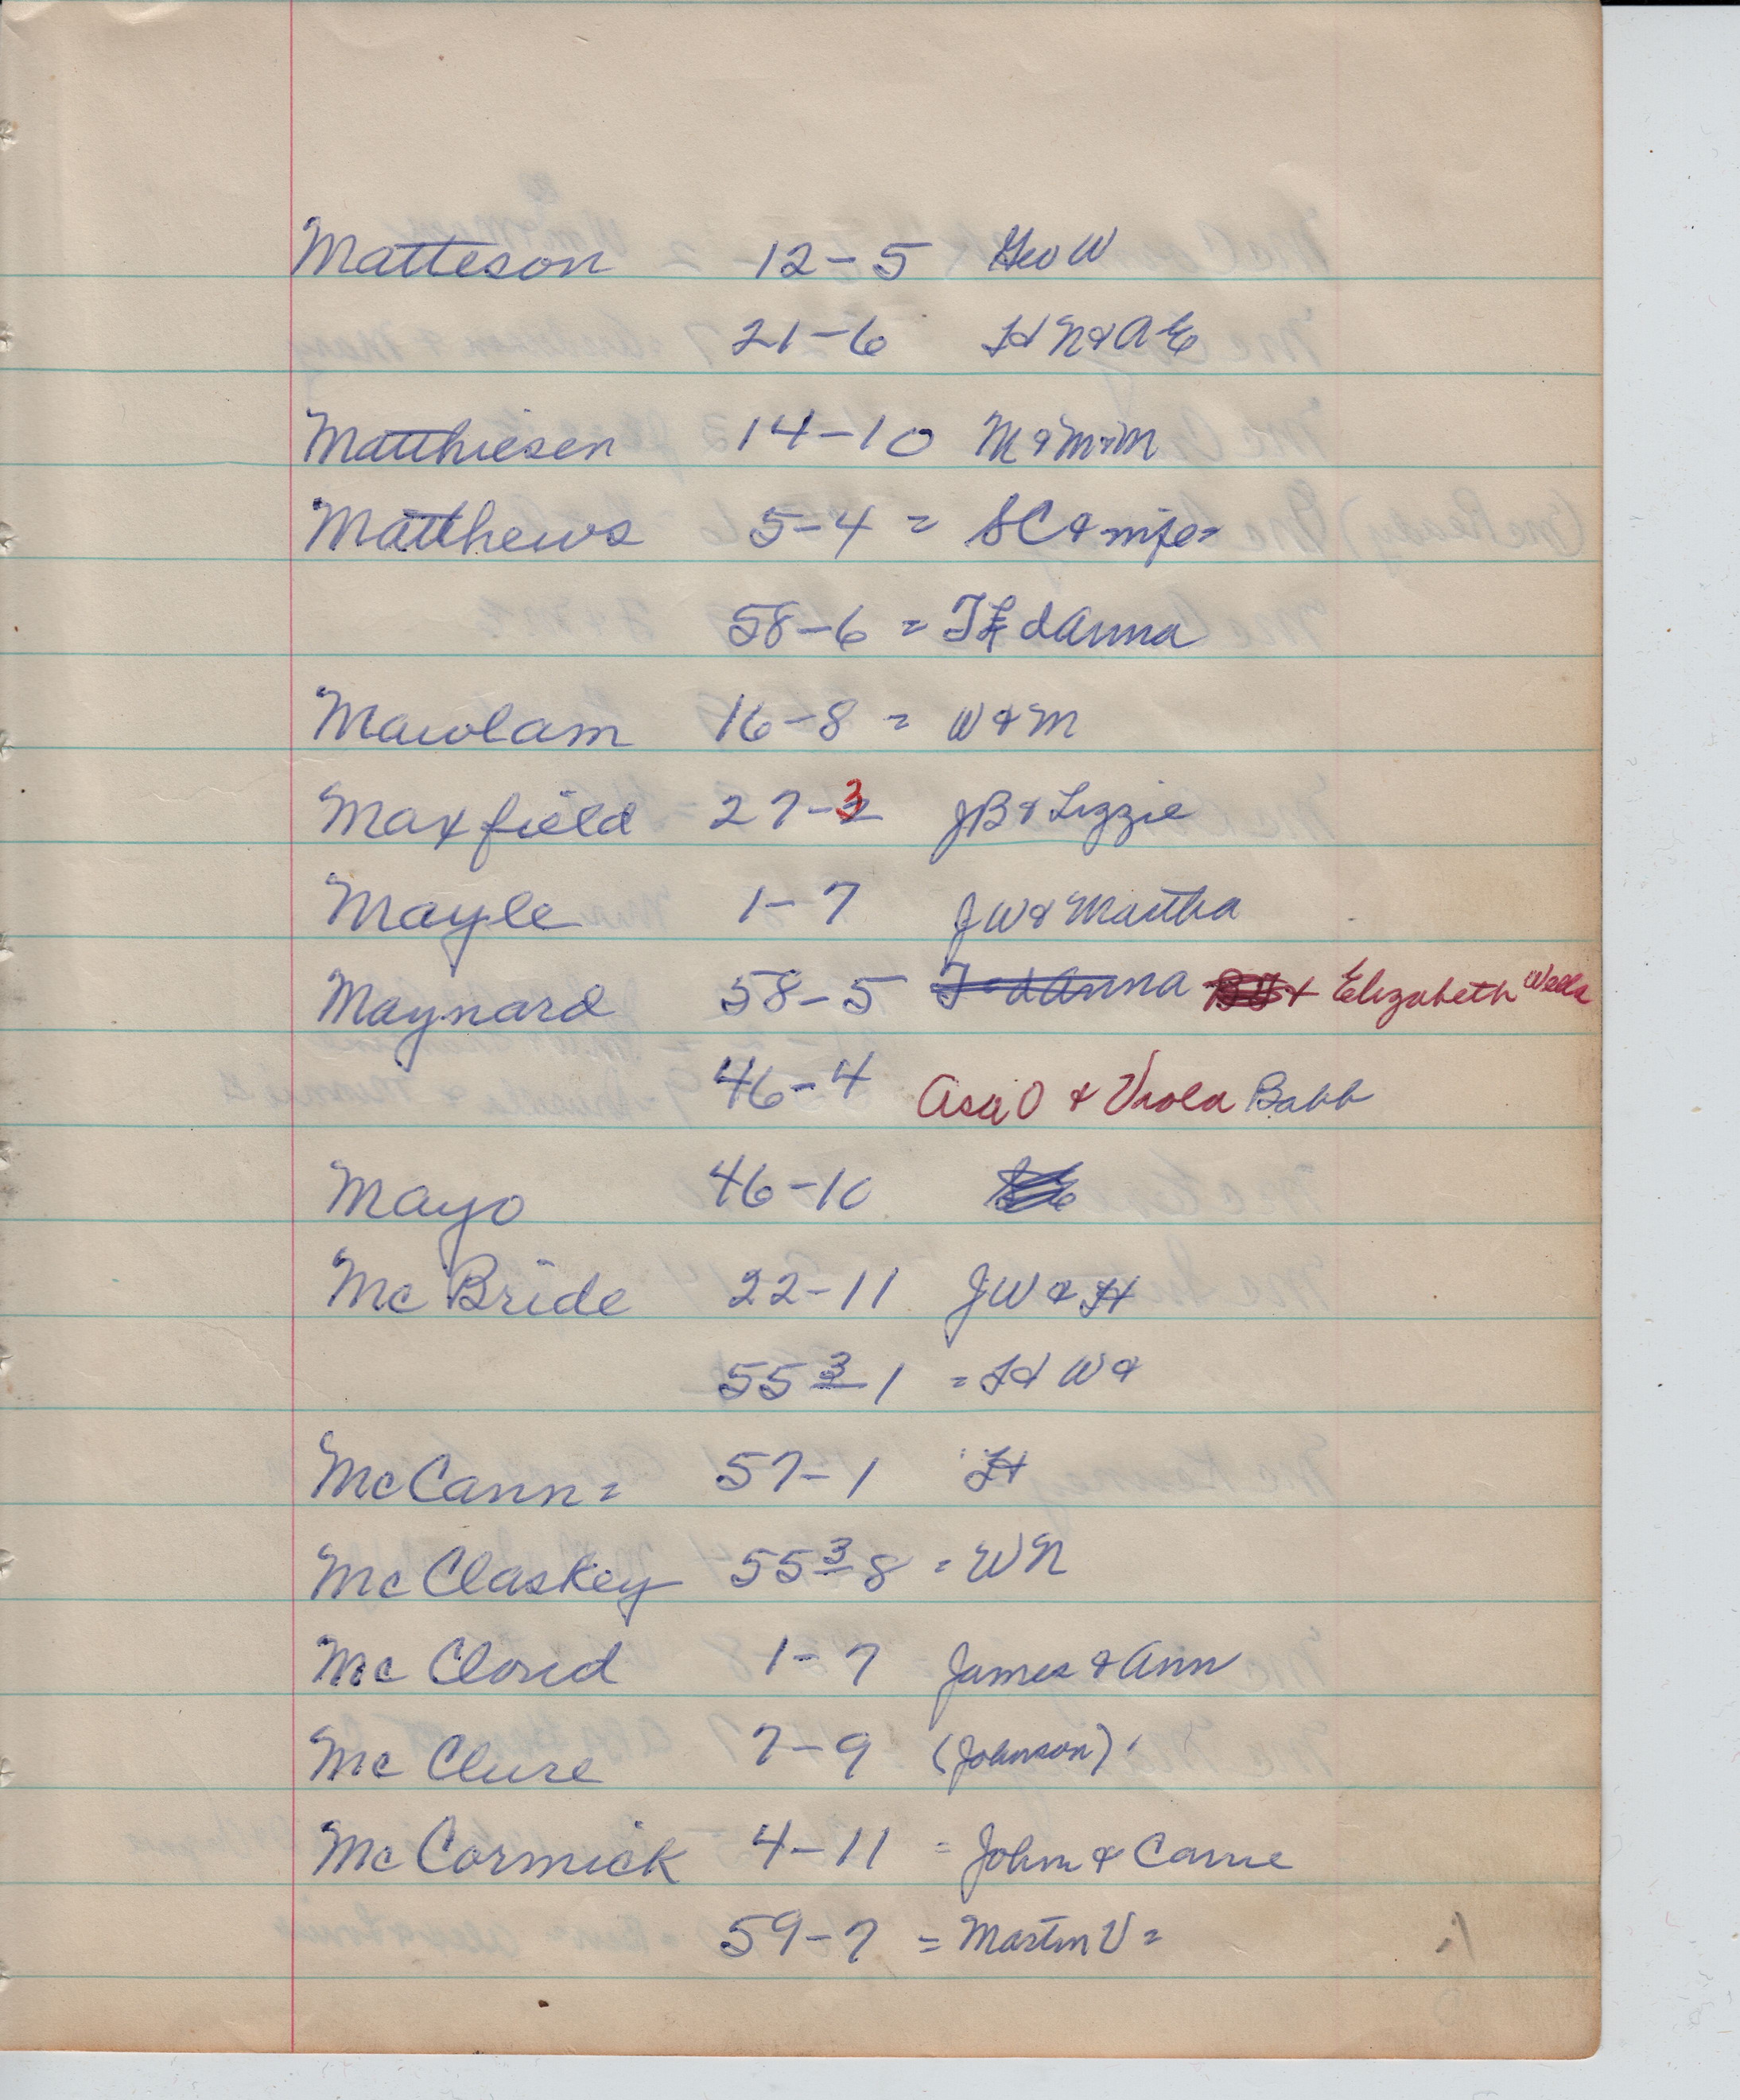 Matteson 12-5 Geo W
21-6 H N & A E
Matthiesen 14-10 M & M & M
Matthews 5-4 = S C & wife =
58-6 = T E & Anna
Mawlam 16-8 = W & M
Maxfield 27-3 J B & Lizzie
Mayle 1-7 J W & Martha
Maynard 58-5 & Anna & Elizabeth Wells
46-4 Asa O & Viola Babb
Mayo 46-10
Mc Bride 22-11 J W & H
55 3 - 1 = H W &
Mc Cann = 57-1 H
Mc Claskey 55 3 - 8 = W N
Mc Cloud 1-7 James & Ann
Mc Clure 7-9 (Johnson)
Mc Cormick 4-11 = John & Carrie
59-7 = Martin V =